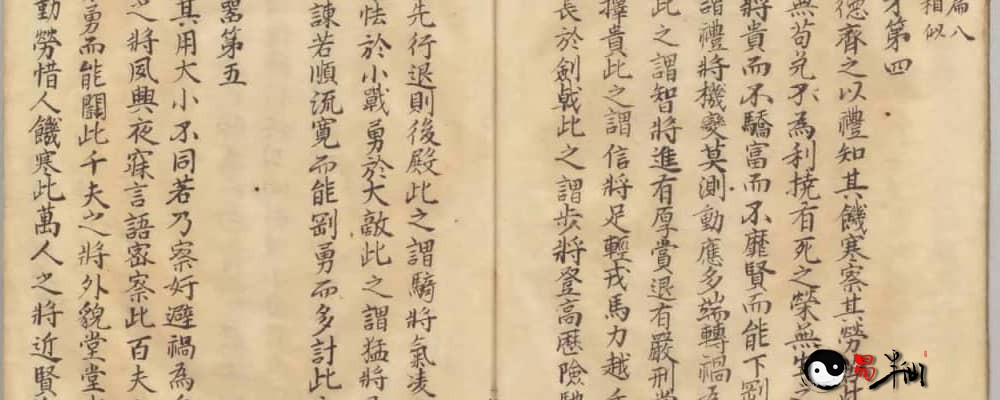 篇八
相似
才第四
德齊之以禮知其饑寒察其勞
無苟免不為利撓有死之榮無生之
將貴而不驕富而不靡賢而能下剛
謂禮將機變莫測動應多端轉禍為
此之謂智將進有厚賞退有嚴刑賞
擇貴此之謂信將足輕戎馬力越千
長於劍戟此之謂步將登高歷險馳
先行退則後殿此之謂騎將氣凌
怯於小戰勇於大敵此之謂猛將
諫若順流寬而能剛勇而多計此
器第五
其用大小不同若乃察奸避禍為
之將夙興夜寐言語密察此百夫
勇而能鬭此千夫之將外貌堂堂
勤勞惜人饑寒此萬人之將近賢
易